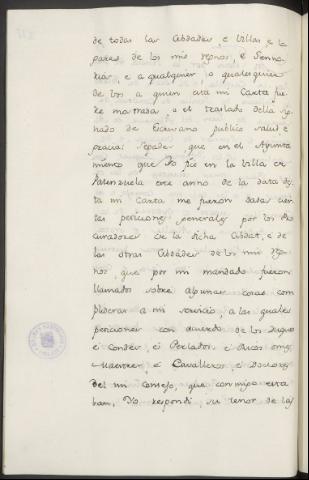 de todas las Cibdades, e Villas, e lo
gares de los mis regnos, e Senno
rios, e a qualquier, o qualesquier
de vos a quien esta mi Carta fue
re mostrada o el traslado della sig
nado de Escrivano publico salud e
gracia: Sepades que en el Ayunta
miento que Yo fice en la Villa de
Palenzuela este anno de la data des
ta mi Carta me fueron dadas cier
tas peticiones generales por los Pro
curadores de la dicha Cibdat, e de
las otras Cibdades de los mis Reg
nos que por mi mandado fueron
llamados sobre algunas cosas com
plideras a mi servicio, a las quales
peticiones con acuerdo de los Duques
é Condes, é Perlados, é Ricos omes,
Maestres, e Cavalleros, e Doctores
del mi Consejo, que conmigo esta
ban, Yo respondi, su tenor de las